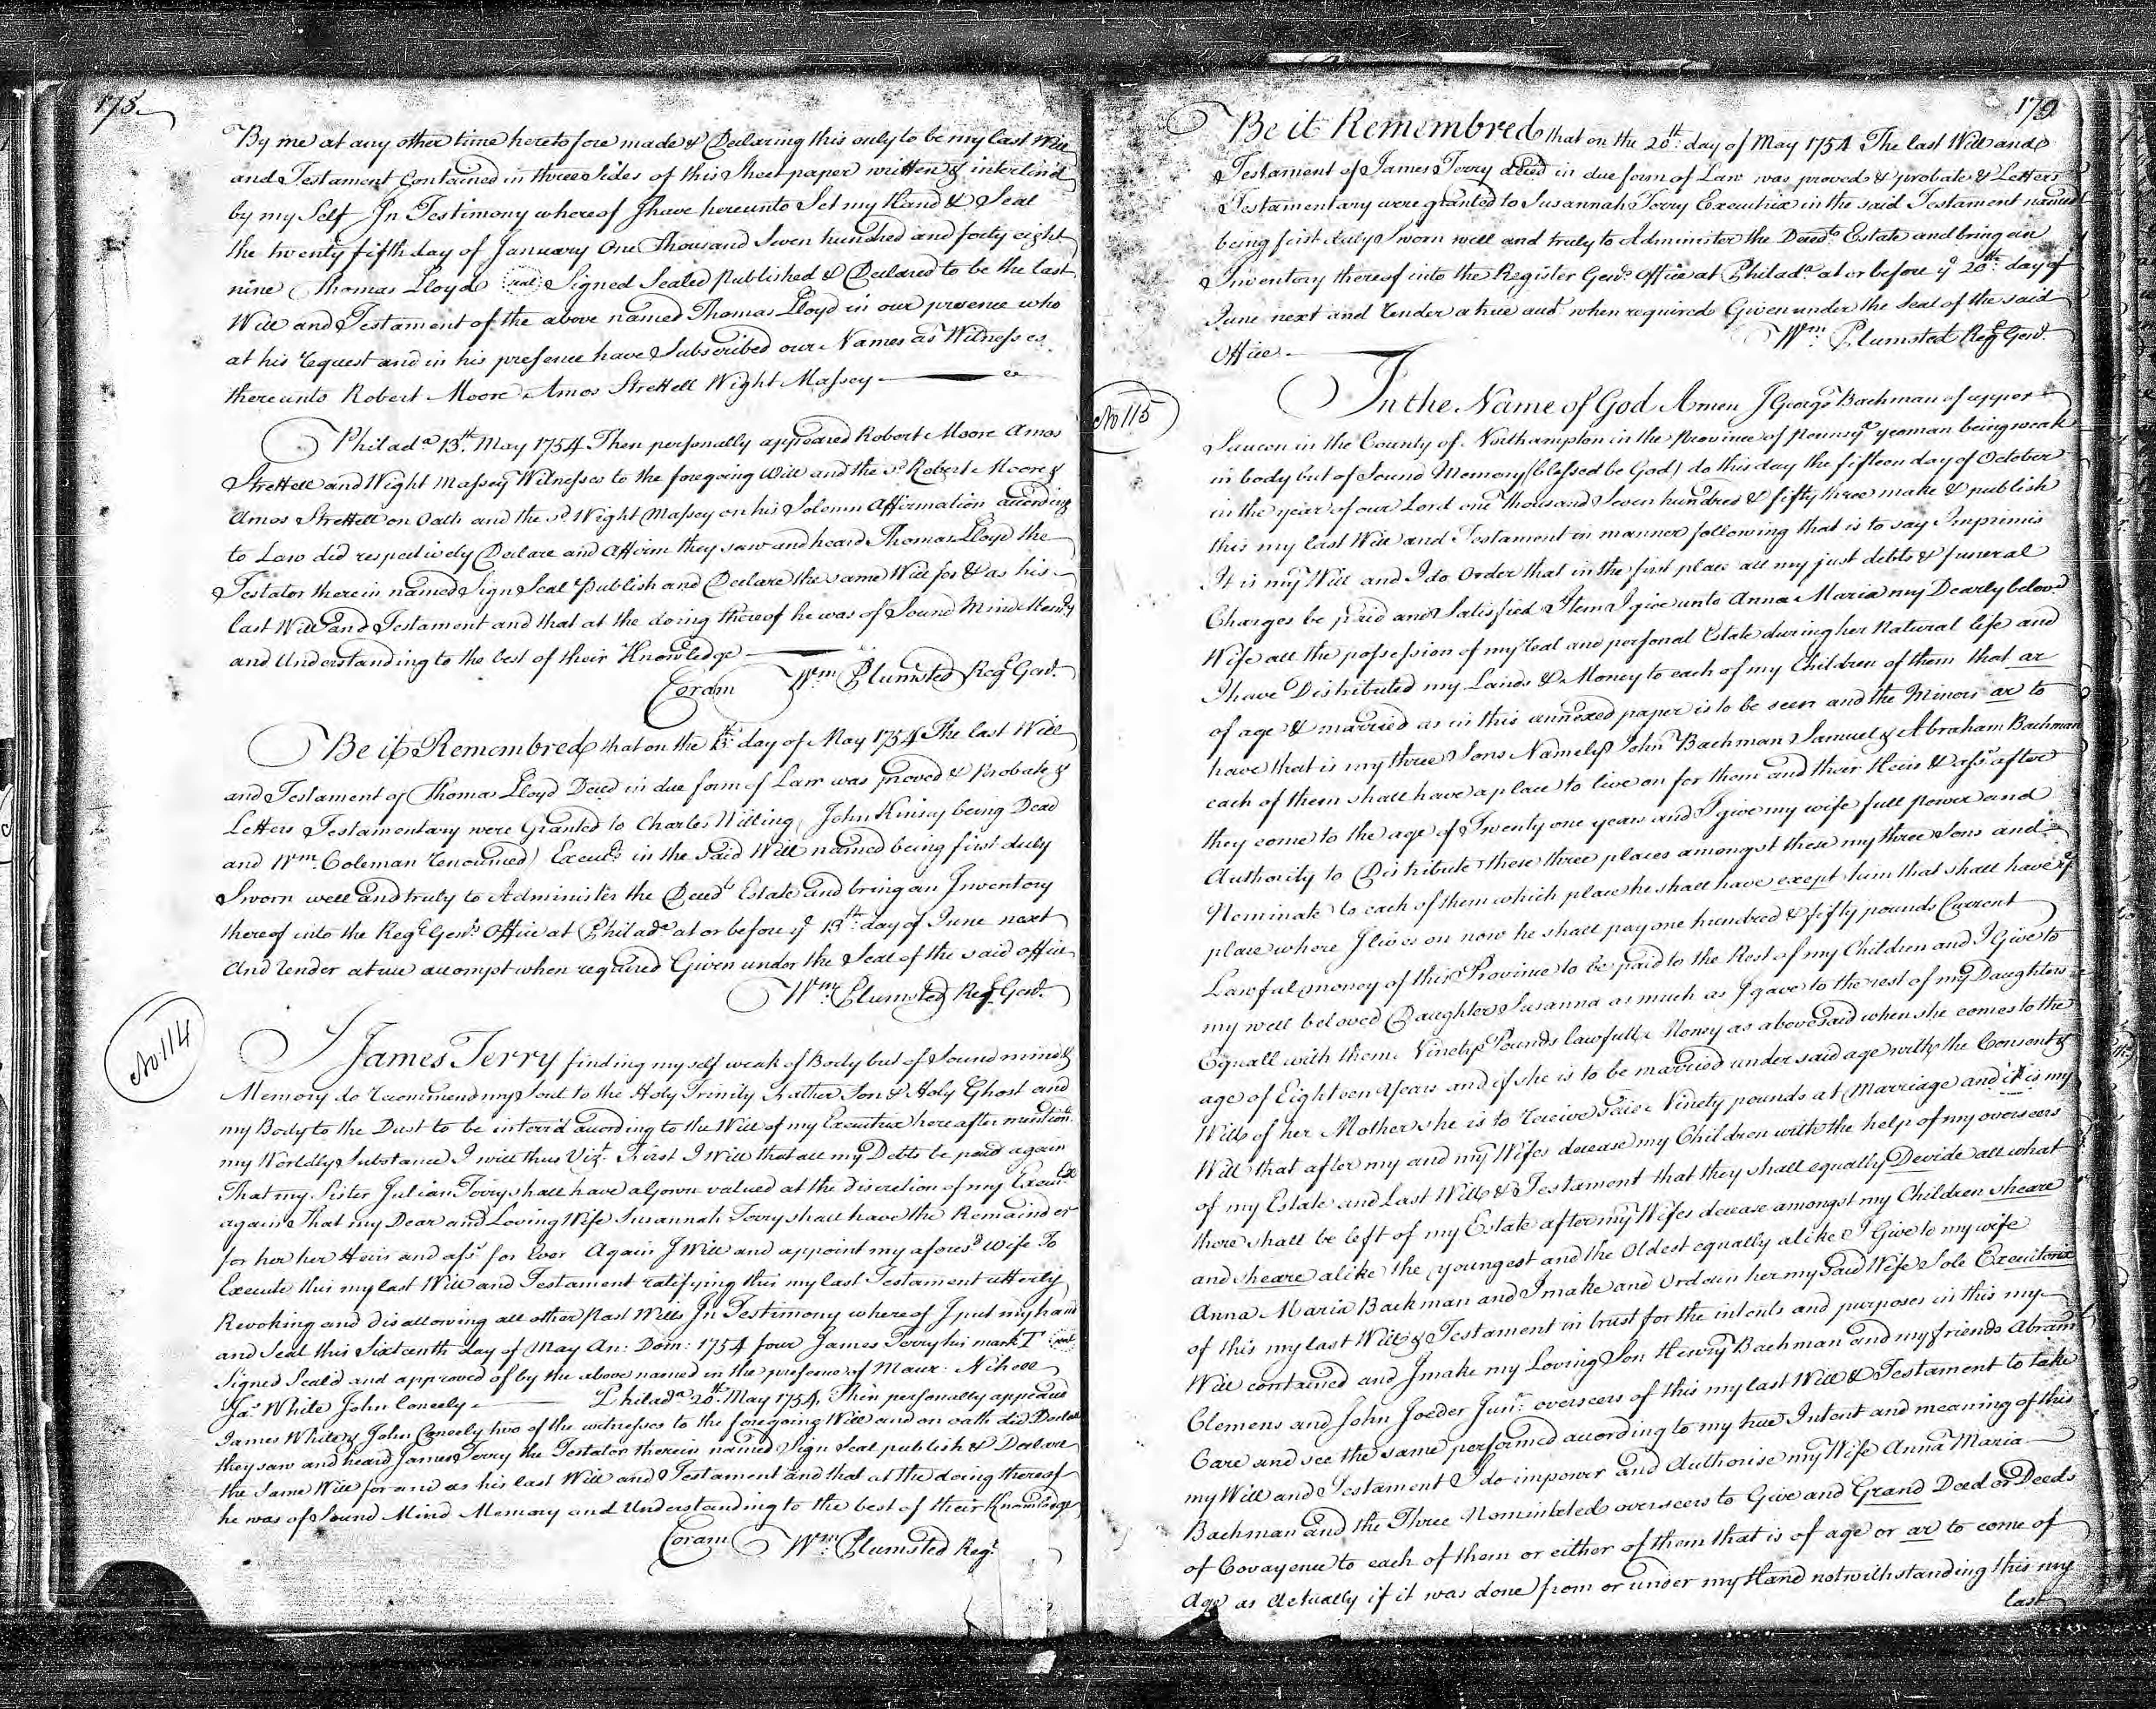 178
By me at any other time heretofore made & Declaring this only to be my last Will
and Testament Contained in three Sides of this Sheet paper written & interlin'd
by my Self In Testimony whereof I have hereunto Set my Hand & Seal
the twenty fifth day of January One Thousand Seven hundred and forty eight
nine Thomas Lloyd seal Signed Sealed Published & Declared to be the last
Will and Testament of the above named Thomas Lloyd in our presence who
at his request and in his presence have Subscribed our Names as Witnesses
thereunto Robert Moore Amos Strettell Wight Massey
Philada 13th May 1754 Then personally appeared Robert Moore Amos
Strettell and Wight Massey Witnesses to the foregoing Will and the sd Robert Moore &
Amos Strettell on Oath and the sd Wight Massey on his Solemn Affirmation according
to Law did respectively Declare and Affirm they saw and heard Thomas Lloyd the
Testator therein named Sign Seal Publish and Declare the same Will for & as his
last Will and Testament and that at the doing thereof he was of Sound Mind Memory
and Understanding to the best of their Knowledge
Coram Wm Plumsted Reg Genl
Be it Remembred that on the 13th day of May 1754 The last Will
and Testament of Thomas Lloyd Deced in due form of Law was proved & Probate &
Letters Testamentary were Granted to Charles Willing (John Kinsey being Dead
and Wm Coleman renounced) Execurs in the Said Will named being first duly
Sworn well and truly to Administer the Deceds Estate and bring an Inventory
thereof into the Regr Genls Office at Philada at or before ye 13th day of June next
And render a true accompt when required Given under the Seal of the said office
Wm Plumsted Reg Genl
No 114
I James Terry finding my self weak of Body but of Sound mind &
Memory do recommend my Soul to the Holy Trinity Father Son & Holy Ghost and
my Body to the Dust to be interr'd according to the Will of my Executrix hereafter mention'd
my Worldly Substance I will thus Vizt First I Will that all my Debts be paid again
That my Sister Julian Terry shall have a Gown valued at the discretion of my Execux
again That my Dear and Loving Wife Susannah Terry shall have the Remainder
for her her Heirs and asss for Ever Again I Will and appoint my aforesd Wife To
Execute this my last Will and Testament ratifying this my last Testament utterly
Revoking and disallowing all other past Wills In Testimony whereof I put my hand
and Seal this Sixteenth day of May An: Dom: 1754 four James Terry his mark T seal
Signed Seal'd and approved of by the above named in the presence of Maur: Nihell
Jas White John Coneely Philada 20th May 1754, Then personally appeared
James White & John Coneely two of the witnesses to the foregoing Will and on oath did Declare
they saw and heard James Terry the Testator therein named Sign Seal publish & Declare
the Same Will for and as his last Will and Testament and that at the doing thereof
he was of Sound Mind Memory and Understanding to the best of their Knowledge
Coram Wm Plumsted Regr
179
Be it Remembred that on the 20th day of May 1754 The last Will and
Testament of James Terry deced in due form of Law was proved & probate & Letters
Testamentary were granted to Susannah Terry Executrix in the said Testament named
being first duly Sworn well and truly to Administer the Deceds Estate and bring an
Inventory thereof into the Register Genls Office at Philada at or before ye 20th day of
June next and render a true acct when required Given under the Seal of the said
Office Wm Plumsted Reg Genl
No 115
In the Name of God Amen I George Bachman of upper
Saucon in the County of Northampton in the Province of Pennsya yeoman being weak
in body but of Sound Memory (blessed be God) do this day the fifteen day of October
in the year of our Lord one thousand Seven hundred & fifty three make & publish
this my last Will and Testament in manner following that is to say Imprimis
It is my Will and I do Order that in the first place all my just debts & funeral
Charges be paid and Satisfied Item I give unto Anna Maria my Dearly belov'd
Wife all the possession of my real and personal Estate during her Natural life and
I have Distributed my Lands & Money to each of my Children of them that ar
of age & married as in this annexed paper is to be seen and the Minors ar to
have that is my three Sons Namely John Bachman Samuel & Abraham Bachman
each of them shall have a place to live on for them and their Heirs & asss after
they come to the age of Twenty one years and I give my wife full power and
Authority to Distribute these three places amongst these my three Sons and
Nominate to each of them which place he shall have except him that shall have ye
place where I lives on now he shall pay one hundred & fifty pounds Current
Lawful money of this Province to be paid to the Rest of my Children and I Give to
my well beloved Daughter Susanna as much as I gave to the rest of my Daughters
Equall with them Ninety Pounds lawfull Money as abovesaid when she comes to the
age of Eighteen Years and if she is to be married under said age with the Consent &
Will of her Mother she is to receive said Ninety pounds at Marriage and it is my
Will that after my and my Wifes decease my Children with the help of my overseers
of my Estate and Last Will & Testament that they shall equally Devide all what
there shall be left of my Estate after my Wifes decease amongst my Children sheare
and sheare alike the youngest and the Oldest equally alike I Give to my wife
Anna Maria Bachman and I make and Ordain her my said Wife Sole Executorix
of this my last Will & Testament in trust for the intents and purposes in this my
Will contained and I make my Loving Son Henry Bachman and my friends Abram
Clemens and John Joeder Junr overseers of this my last Will & Testament to take
Care and see the same performed according to my true Intent and meaning of this
my Will and Testament I do impower and Authorise my Wife Anna Maria
Bachman and the Three Nominated overseers to Give and Grand Deed or Deeds
of Covayence to each of them or either of them that is of age or ar to come of
Age as Actually if it was done from or under my Hand notwithstanding this my
last